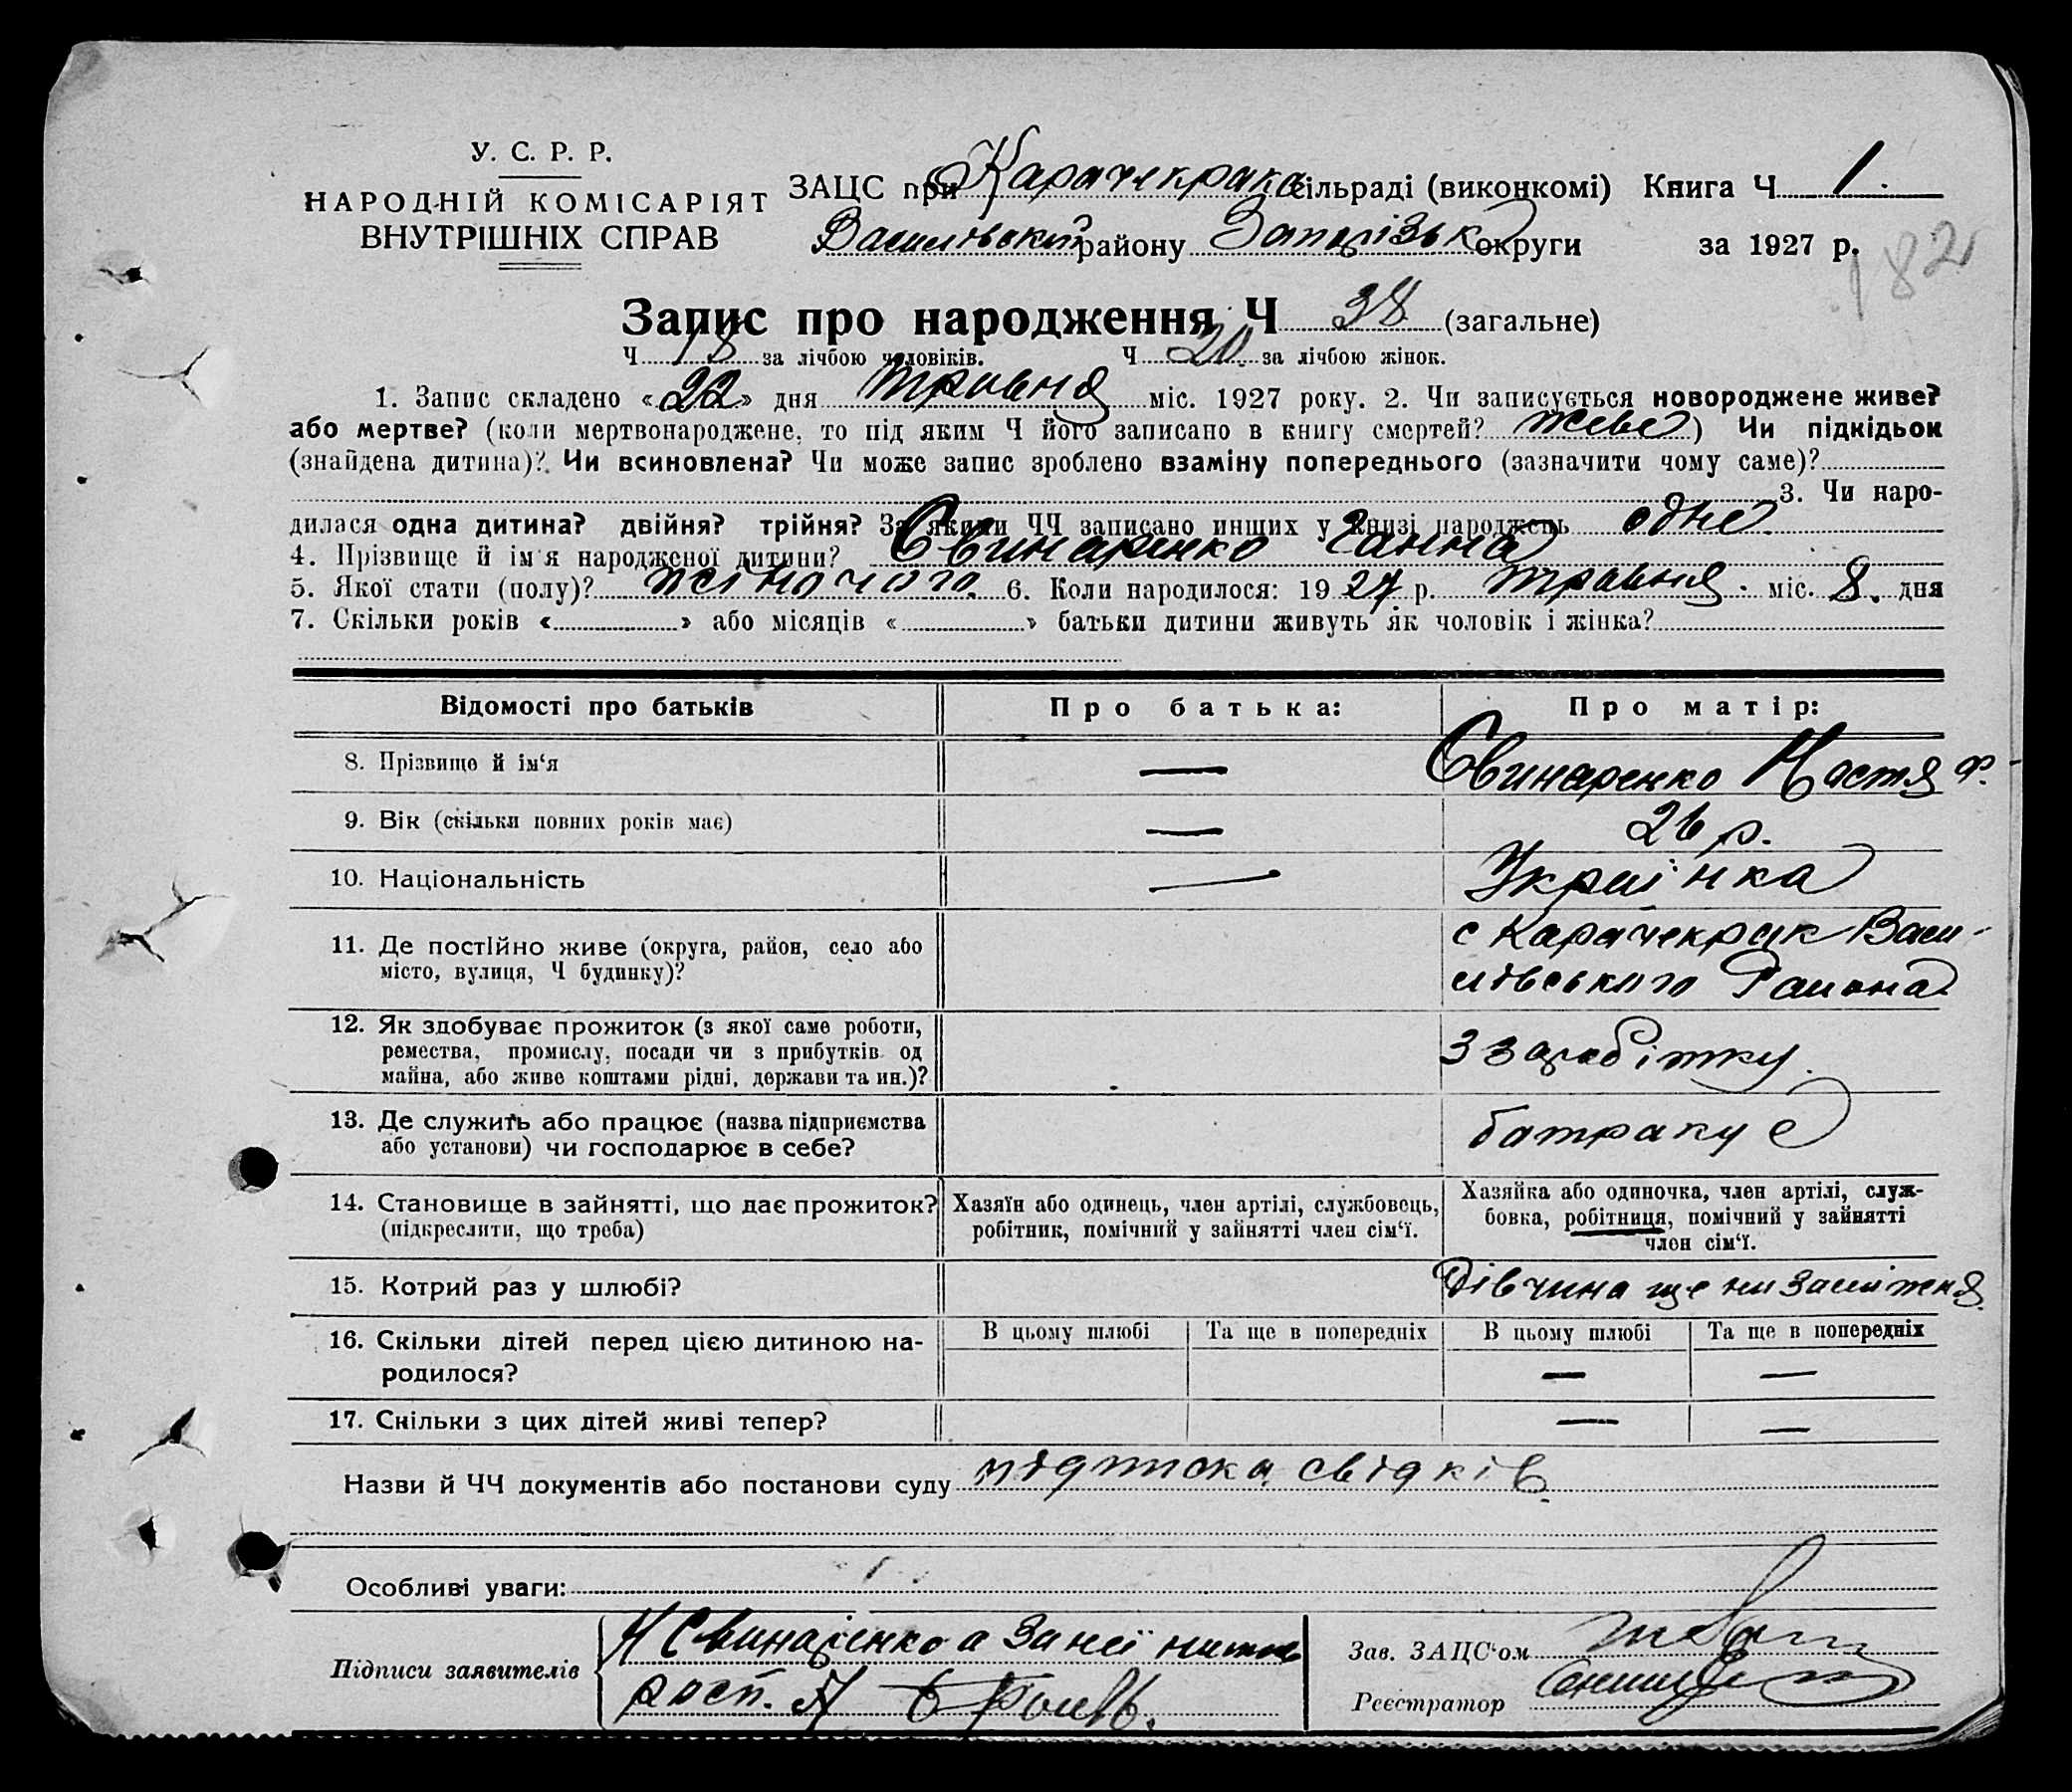 У. С. Р. Р.
НАРОДНІЙ КОМІСАРІЯТ
ВНУТРІШНІХ СПРАВ
ЗАЦС при Карачекрака сільраді (виконкомі) Книга Ч 1.
Василівський району Запорізьк округи за 1927 р.
182
Запис про народження Ч 38 (загальне)
Ч 18 за лічбою чоловіків. Ч 20 за лічбою жінок.
1. Запис складено «22» дня травня міс. 1927 року. 2. Чи записується новороджене живе?
або мертве? (коли мертвонароджене, то під яким Ч його записано в книгу смертей? живе) Чи підкідьок
(знайдена дитина)? Чи всиновлена? Чи може запис зроблено взаміну попереднього (зазначити чому саме)?
3. Чи наро-
дилася одна дитина? двійня? трійня? За якими ЧЧ записано инших у книзі народжень одне
4. Прізвище й ім'я народженої дитини? Свинаренко Ганна
5. Якої стати (полу)? жіночого. 6. Коли народилося: 1927 р. травня. міс. 8. дня
7. Скільки років «» або місяців «» батьки дитини живуть як чоловік і жінка?
Відомості про батьків Про батька: Про матір:
8. Прізвище й ім‘я — Свинаренко Настя Ф.
9. Вік (скільки повних років має) — 26 р.
10. Національність — Українка
11. Де постійно живе (округа, район, село або с Карачекрак Васи-
місто, вулиця, Ч будинку)? лівського Району
12. Як здобуває прожиток (з якої саме роботи,
ремества, промислу, посади чи з прибутків од з заробітку.
майна, або живе коштами рідні, держави та ин.)?
13. Де служить або працює (назва підприємства батракує
або установи) чи господарює в себе?
14. Становище в зайнятті, що дає прожиток? Хазяїн або одинець, член артілі, службовець, Хазяйка або одиночка, член артілі, служ-
(підкреслити, що треба) робітник, помічний у зайнятті член сім‘ї. бовка, робітниця, помічний у зайнятті
член сім‘ї.
15. Котрий раз у шлюбі? Дівчина ще ни заміжня.
16. Скільки дітей перед цією дитиною на- В цьому шлюбі Та ще в попередніх В цьому шлюбі Та ще в попередніх
родилося? — —
17. Скільки з цих дітей живі тепер? — —
Назви й ЧЧ документів або постанови суду підписка свідків
Особливі уваги:
Підписи заявителів Н Свинаренко а за неї
росп.
Зав. ЗАЦС‘ом
Реєстратор